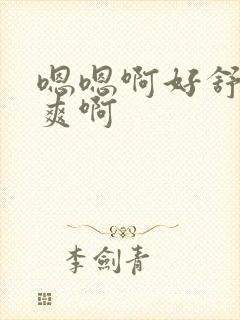 嗯嗯啊好舒
爽啊
李劍青